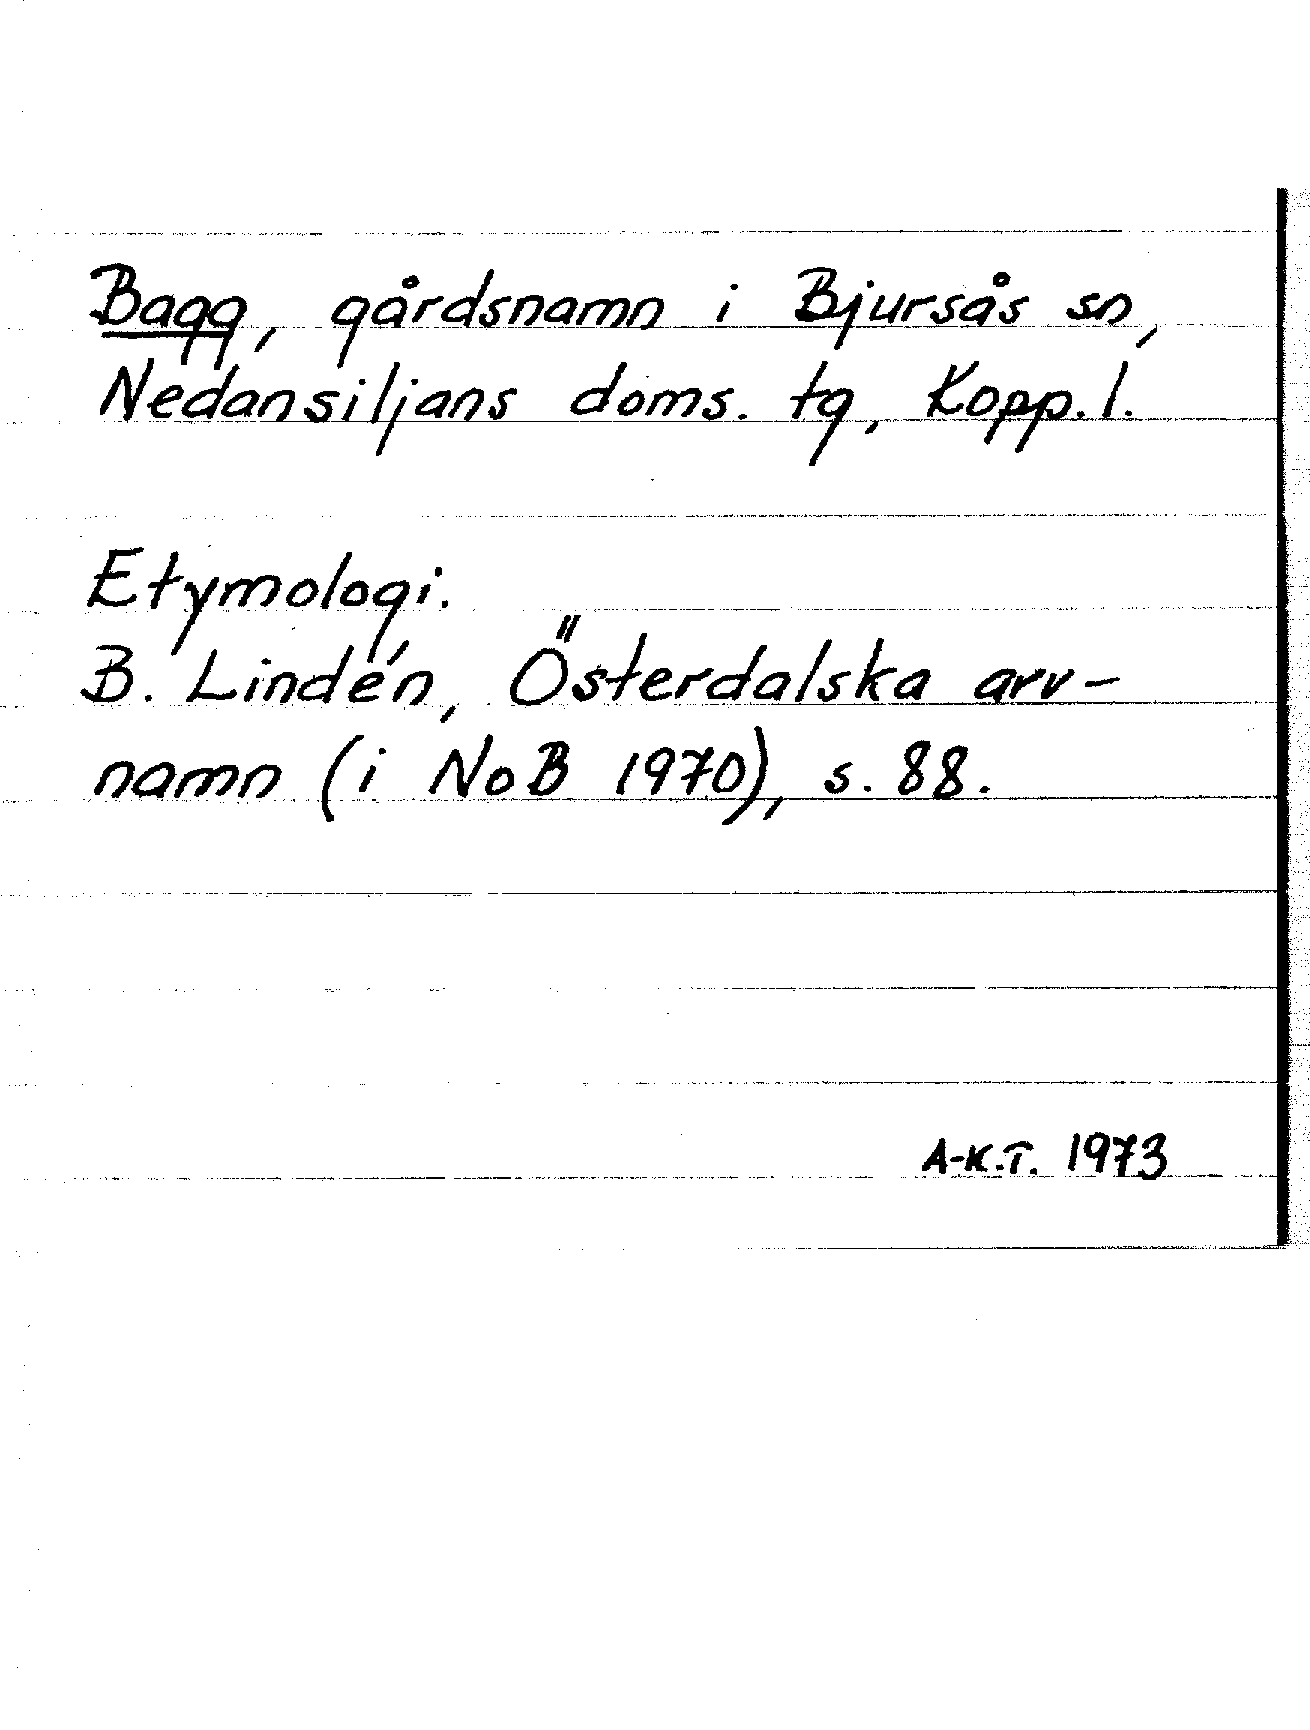 Bagg, gårdsnamn i Bjursås sn,
Nedansiljans doms. tg, Kopp. l.
Etymologi.
B. Lindén, Österdalska arv-
namn (i NoB 1970), s. 88.
A-K.T. 1973